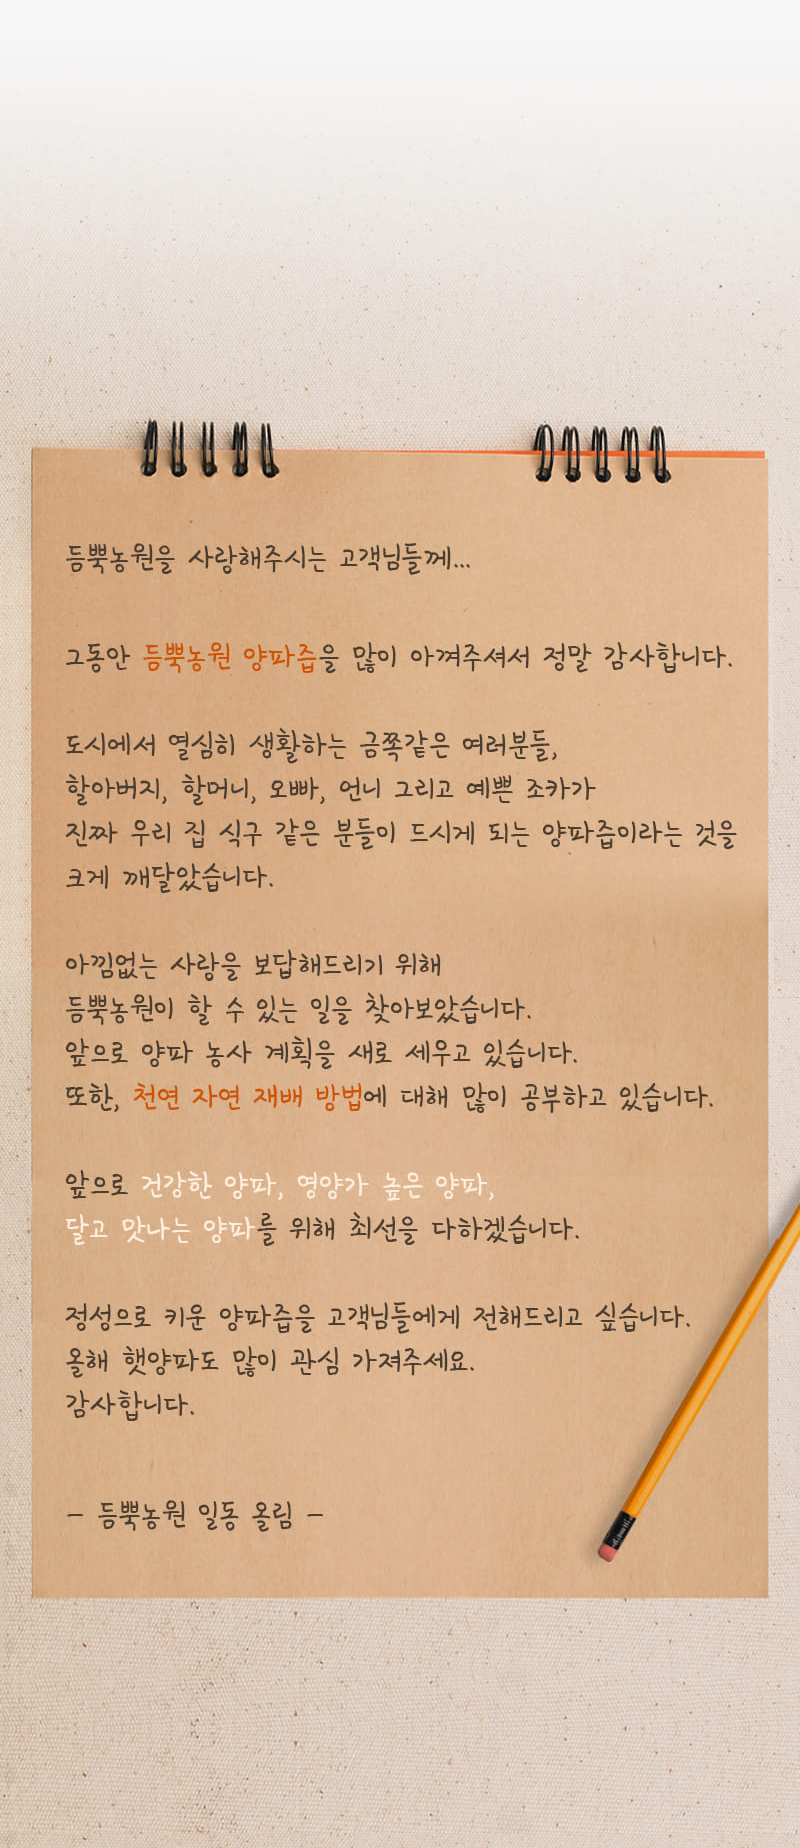 듬뿍농원을 사랑해주시는 고객님들께...
그동안 듬뿍농원 양파즙을 많이 아껴주셔서 정말 감사합니다.
도시에서 열심히 생활하는 금쪽같은 여러분들,
할아버지, 할머니, 오빠, 언니 그리고 예쁜 조카가
진짜 우리 집 식구 같은 분들이 드시게 되는 양파즙이라는 것을
크게 깨달았습니다.
아낌없는 사랑을 보답해드리기 위해
듬뿍농원이 할 수 있는 일을 찾아보았습니다.
앞으로 양파 농사 계획을 새로 세우고 있습니다.
또한, 천연 자연 재배 방법에 대해 많이 공부하고 있습니다.
앞으로 건강한 양파, 영양가 높은 양파,
달고 맛나는 양파를 위해 최선을 다하겠습니다.
정성으로 키운 양파즙을 고객님들에게 전해드리고 싶습니다.
올해 햇양파도 많이 관심 가져주세요.
감사합니다.
- 듬뿍농원 일동 올림 -